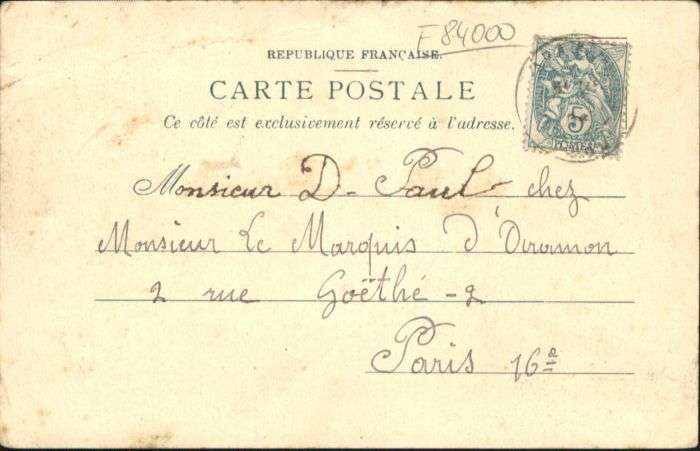 F 84000
REPUBLIQUE FRANÇAISE.
CARTE POSTALE
Ce côté est exclusivement réservé à l'adresse.
5c
Monsieur D. Paul chez
Monsieur Le Marquis d'Oramon
2 rue Goëthé - 2
Paris 16e